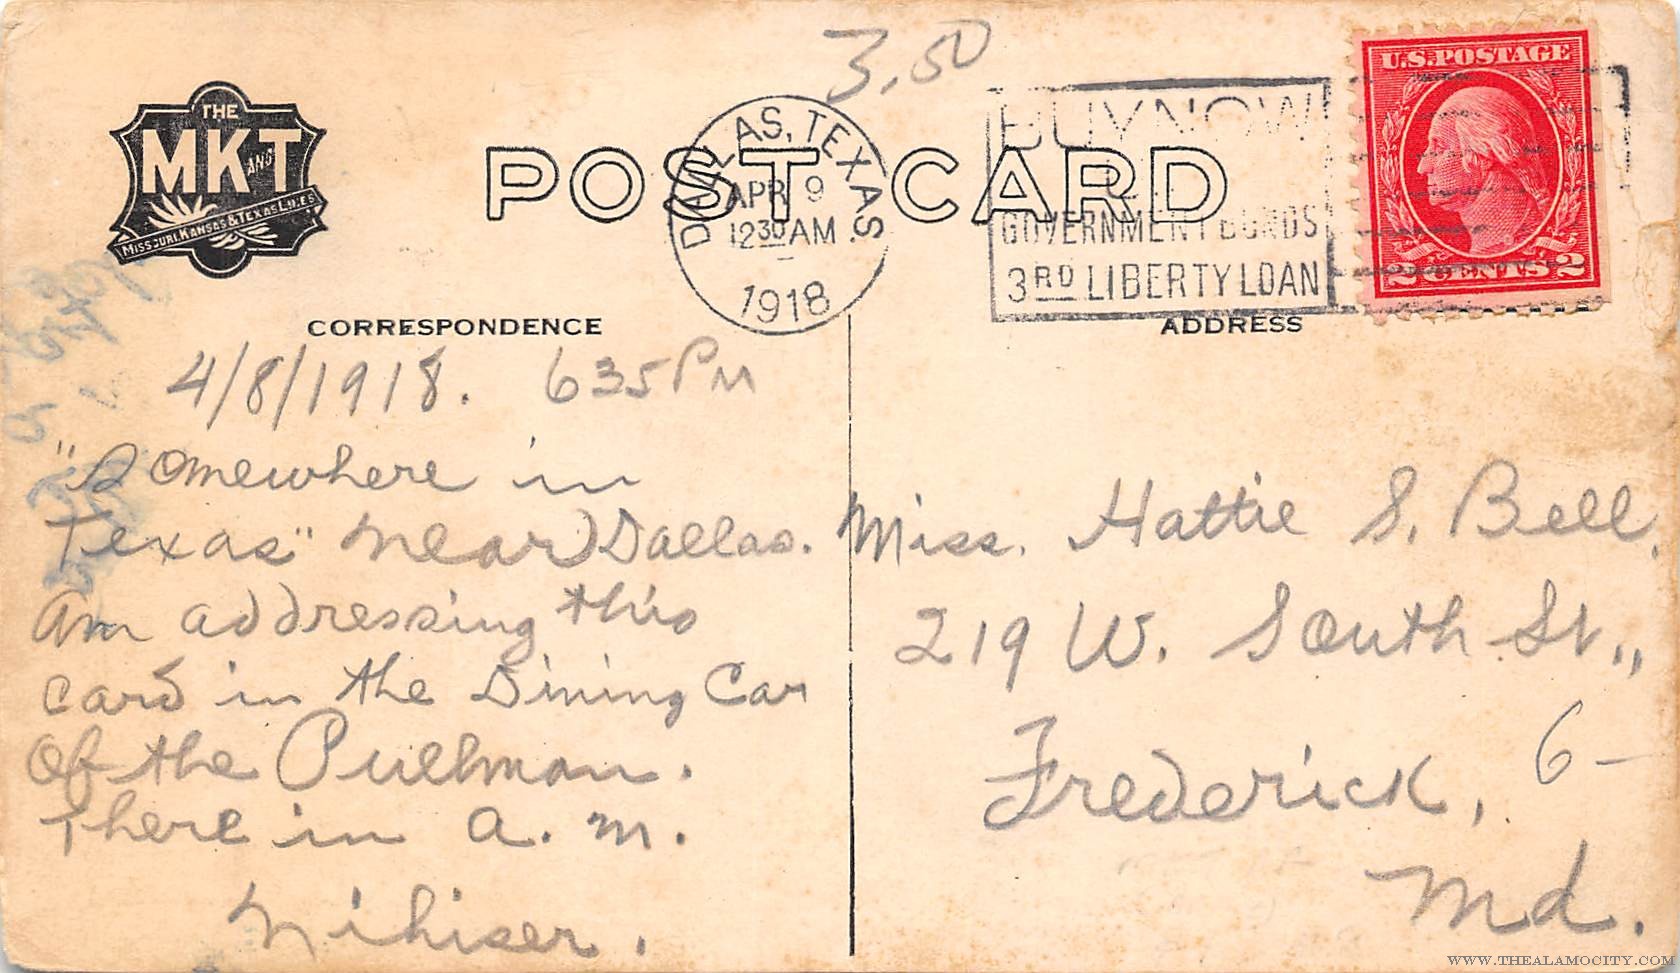 3.50
THE
MK AND T
MISSOURI, KANSAS & TEXAS LINES
POST CARD
DALLAS, TEXAS.
APR 9
12 30 AM
1918
BUY NOW
U.S.
GOVERNMENT BONDS
3RD LIBERTY LOAN
U.S. POSTAGE
2 CENTS 2
CORRESPONDENCE
4/8/1918. 6 35 PM
"Somewhere in
Texas" near Dallas.
Am addressing this
card in the Dining Car
Of the Pullman.
There in a.m.
Nihiser.
ADDRESS
Miss. Hattie S. Bell,
219 W. South St.,,
Frederick,
6-
Md.
WWW.THEALAMOCITY.COM